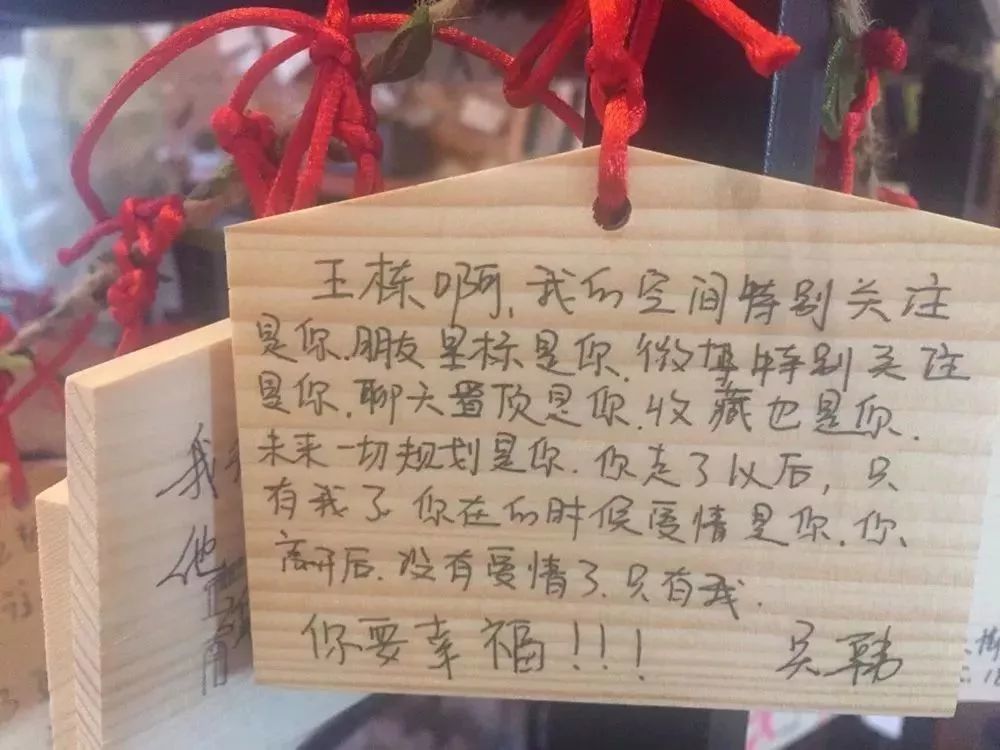 王栋啊,我的空间特别关注
是你.朋友星标是你.微博特别关注
是你.聊天置顶是你.收藏也是你.
未来一切规划是你.你走了以后,只
有我了.你在的时候爱情是你.你
离开后.没有爱情了.只有我.
你要幸福!!!
吴韩
我
他